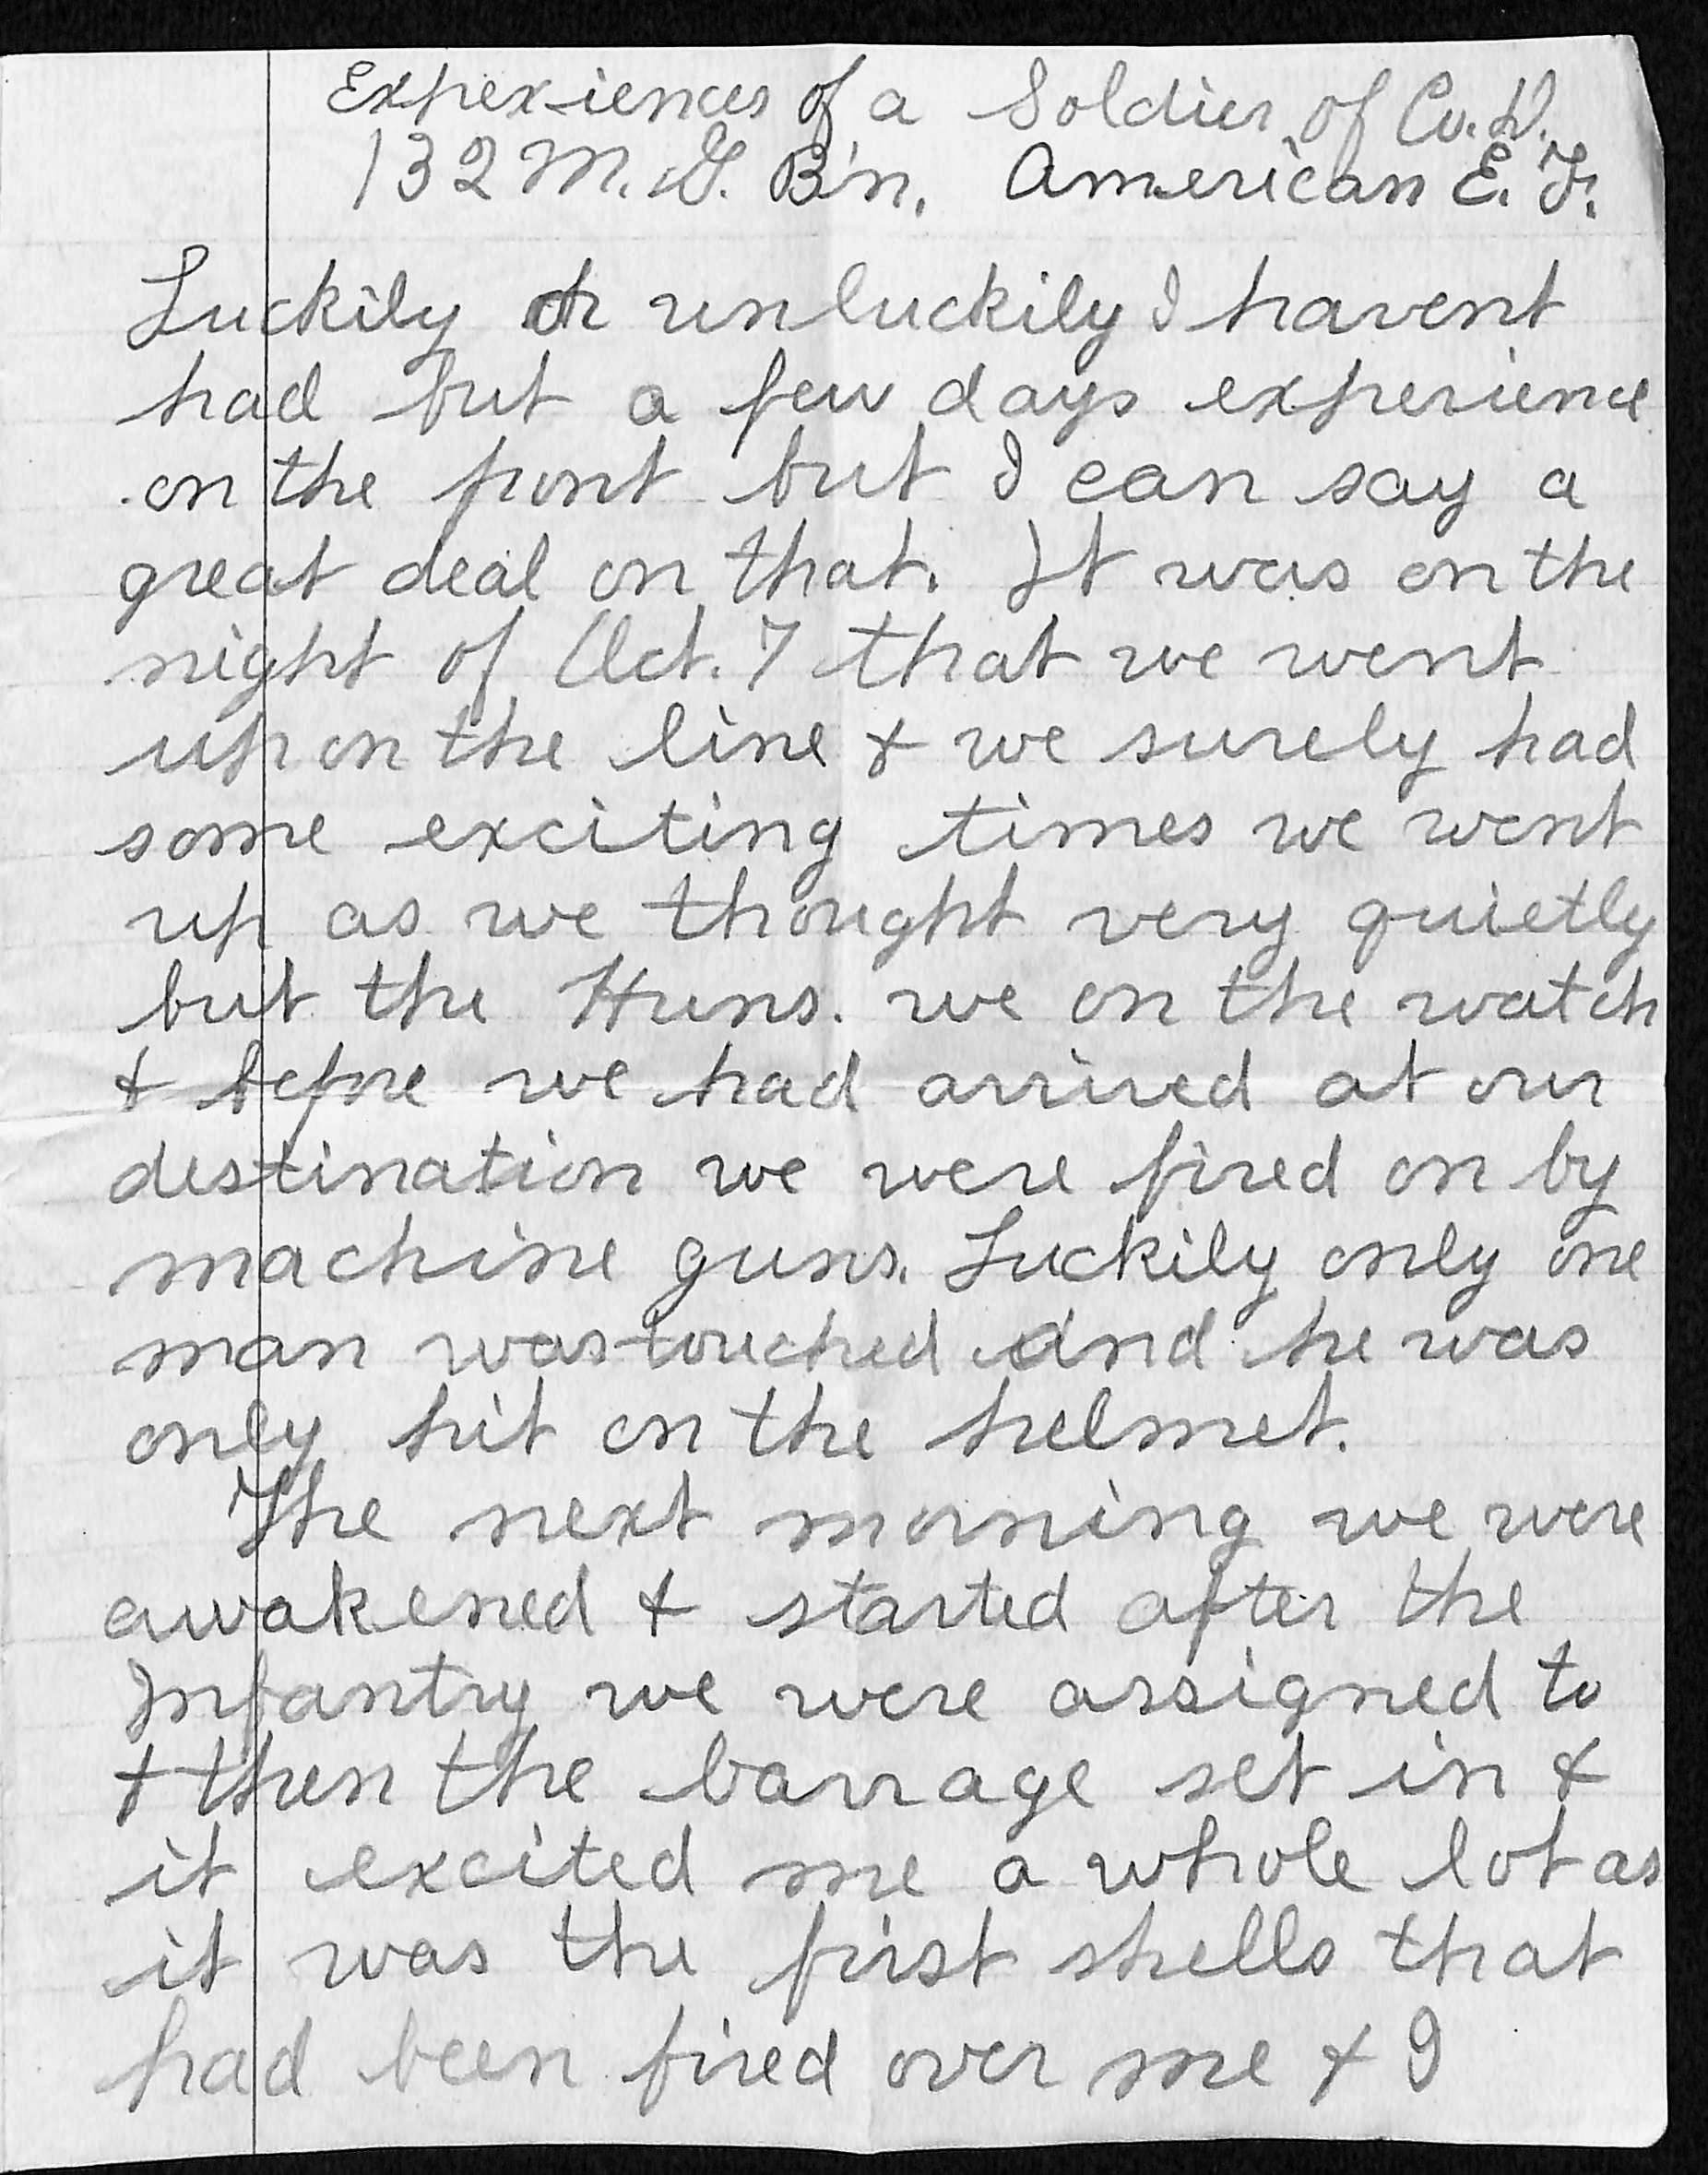 Experiences of a Soldier of Co. D.
132 M. G. B'n. American E. F.
Luckily or unluckily I havent
had but a few days experience
on the front but I can say a
great deal on that. It was on the
night of Oct. 7 that we went
up on the line & we surely had
some exciting times we went
up as we thought very quietly
but the Huns. we on the watch
& before we had arrived at our
destination we were fired on by
machine guns. Luckily only one
man was touched and he was
only hit on the helmet.
The next morning we were
awakened & started after the
Infantry we were assigned to
& then the barrage set in &
it excited me a whole lot as
it was the first shells that
had been fired over me & I